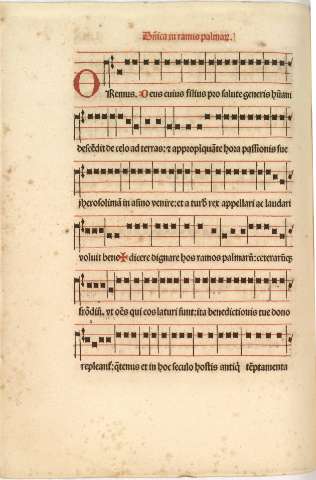 Dñica in ramis palmaꝝ.
ORemus. Deus cuius filius pro salute generis hūani
descēdit de celo ad terras: ⁊ appropīquāte hora passionis sue
jherosolimā in asino venire: et a turb' rex appellari ac laudari
voluit bene✠dicere dignare hos ramos palmarū: ceterarūqꝫ
frōdiū. vt oēs qui eos laturi sunt: ita benedictionis tue dono
repleant̄: q̄tenus et in hoc seculo hostis antiq̄ tēptamenta